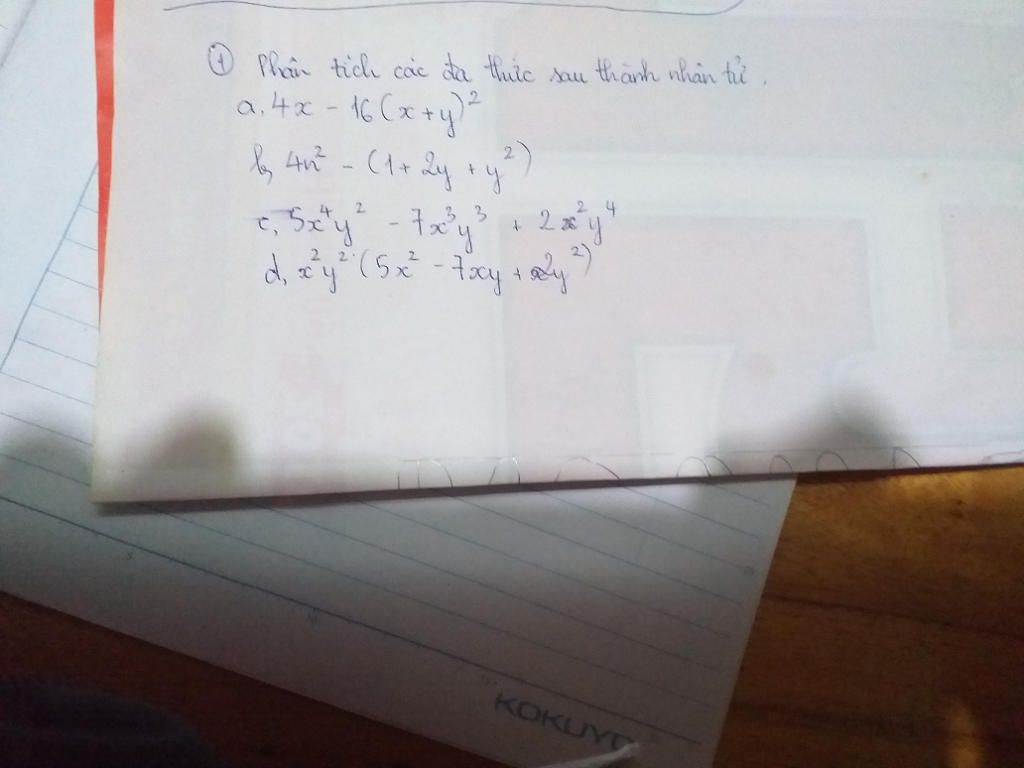 ① Phân tích các đa thức sau thành nhân tử.
a, 4x - 16(x+y)²
b, 4n² - (1 + 2y + y²)
c, 5x⁴y² - 7x³y³ + 2x²y⁴
d, x²y² (5x² - 7xy + 2y²)
KOKUYO